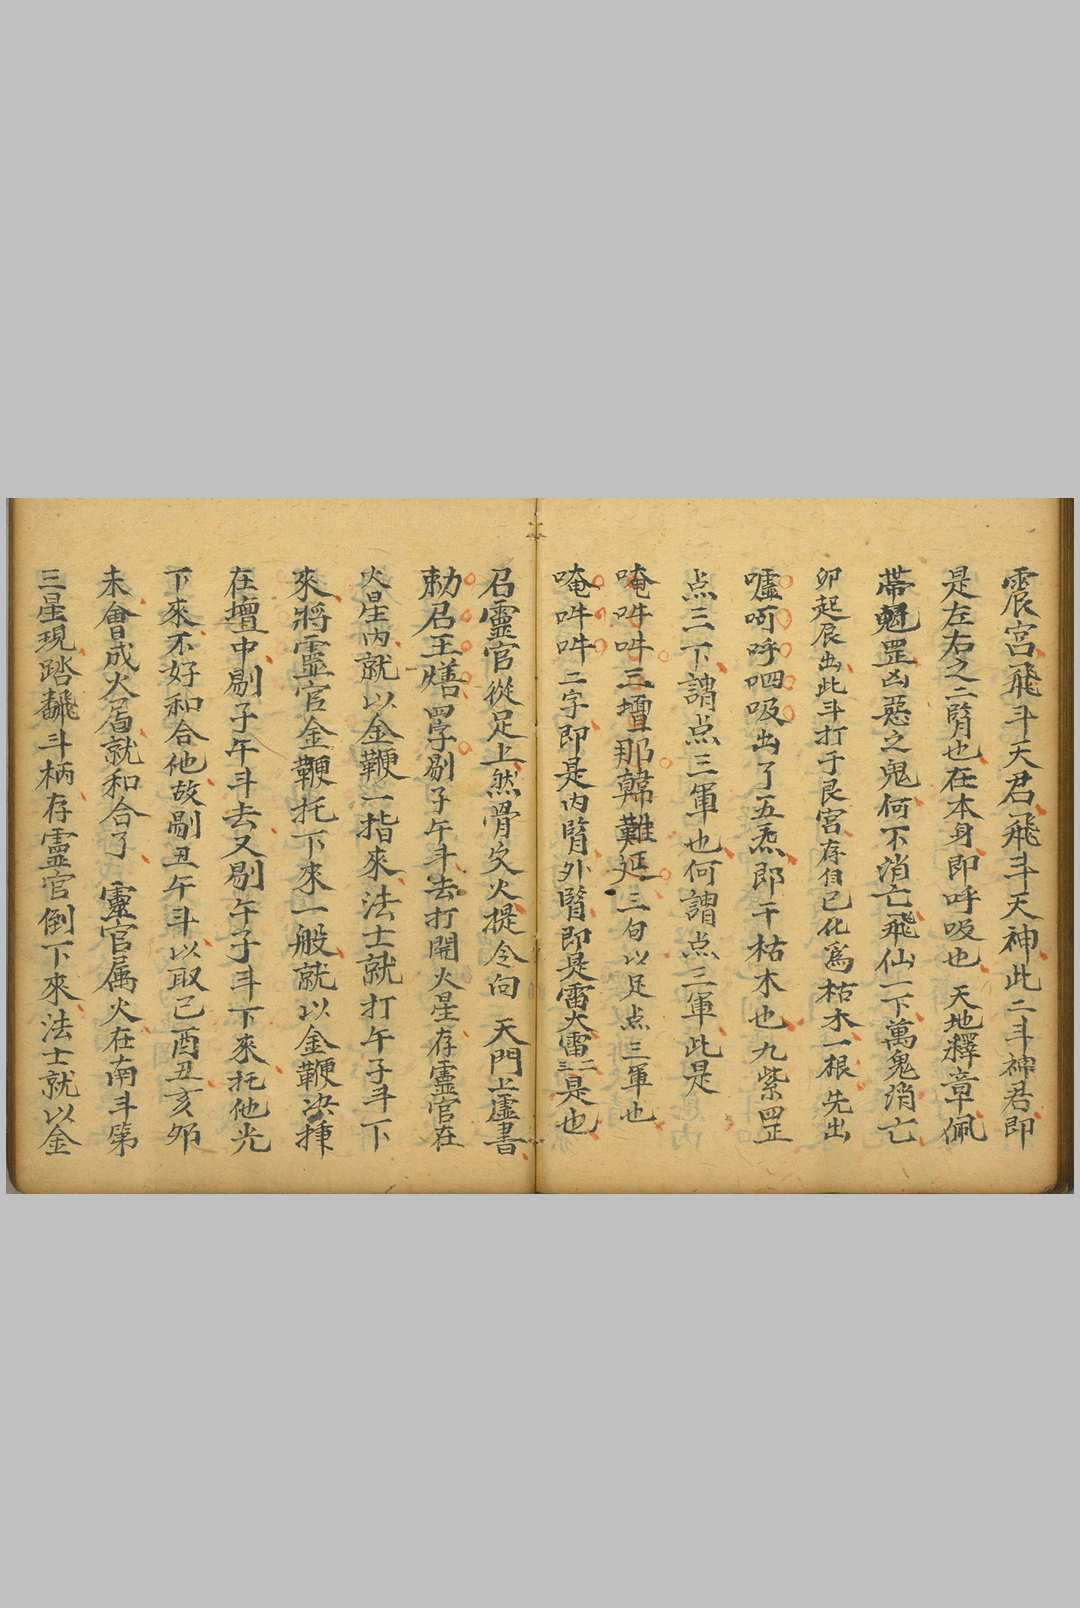 震宮飛斗大君飛斗天神此二斗神君即
是左右之二腎也在本身即呼吸也 天地釋章佩
帶魁罡凶惡之鬼何不消亡飛仙一下萬鬼消亡
卯起辰出此斗打于艮宮存自己化為枯木一根先出
噓呵呼呬吸出了五炁即干枯木也九紫罡
点三下謂点三軍也何謂点三軍此是
唵吽吽三壇那韓難延三句以足点三軍也
唵吽吽二字即是內腎外腎即是雷大雷二三是也
召靈官從足上然骨炎火提令向 天門上虛書
勅召王燔四字剔子午斗去打開火星存靈官在
火星內就以金鞭一指來法士就打午子斗下
來將靈官金鞭托下來一般就以金鞭決揮
在壇中剔子午斗去又剔午子斗下來托他光
下來不好和合他故剔丑午斗以取己酉丑亥夘
未會成火局就和合了 靈官属火在南斗第
三星現踏飜斗柄存靈官倒下來法士就以金